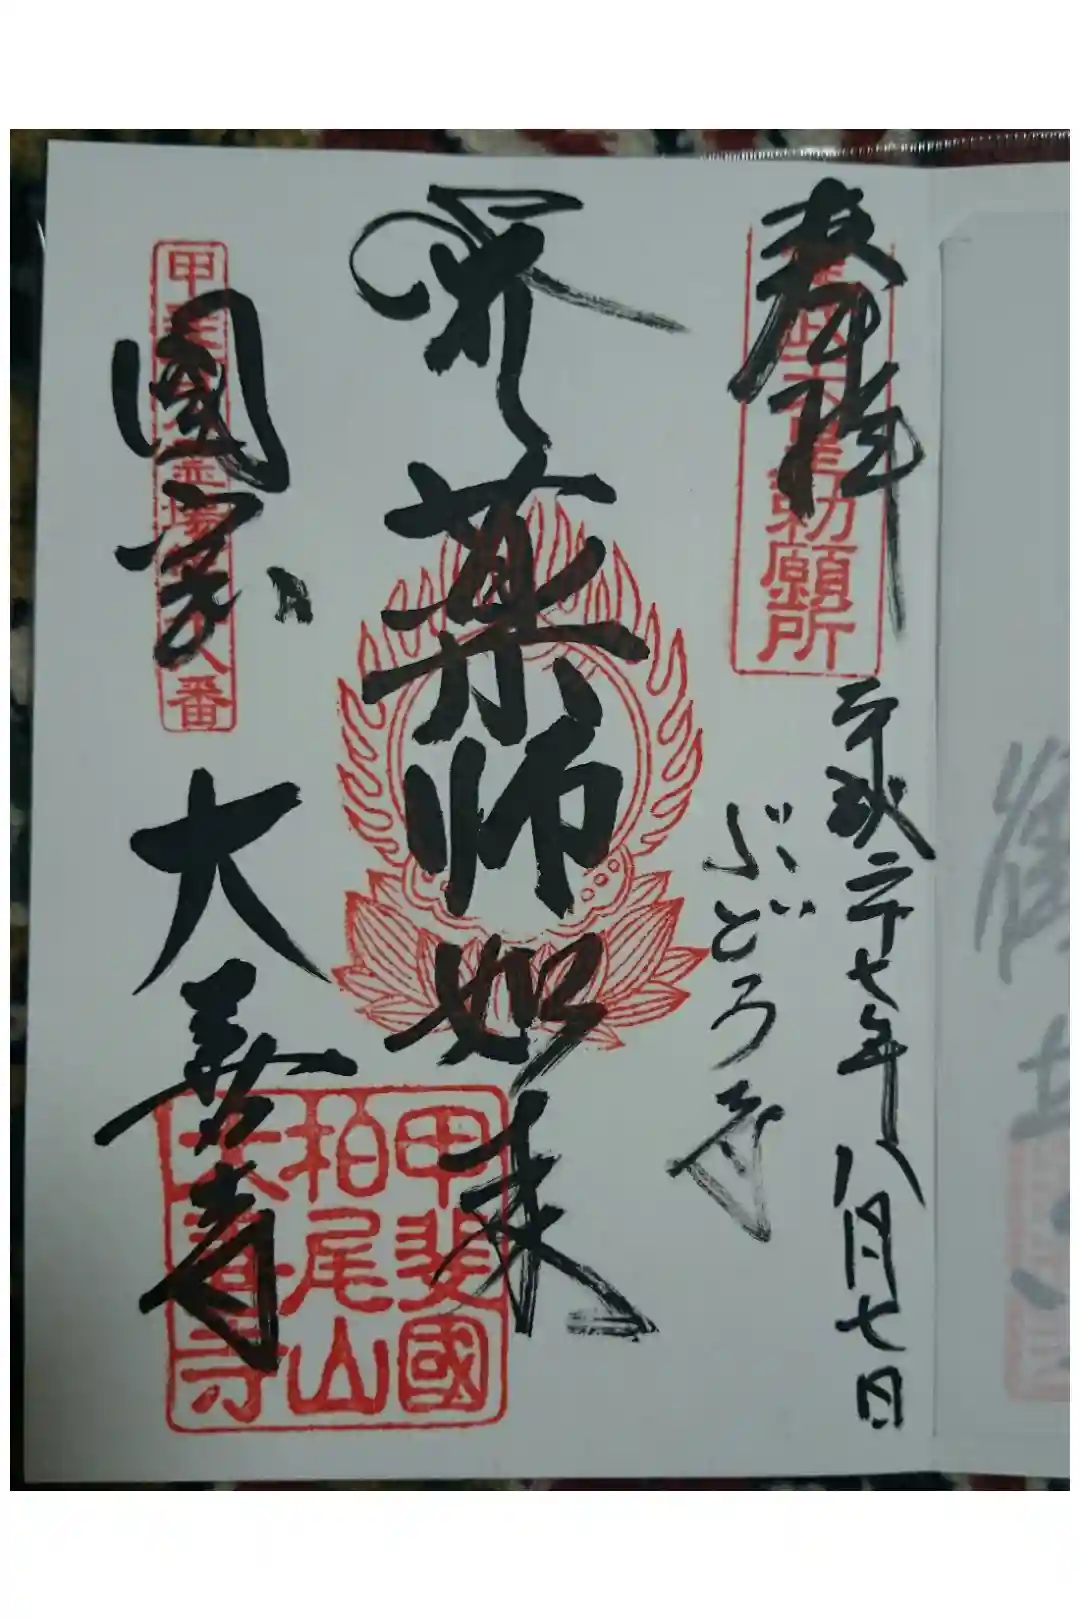 奉拝
聖武天皇勅願所
平成二十七年八月七日
ぶどう寺
薬師如来
甲斐國
柏尾山
大善寺
番
国宝
大善寺